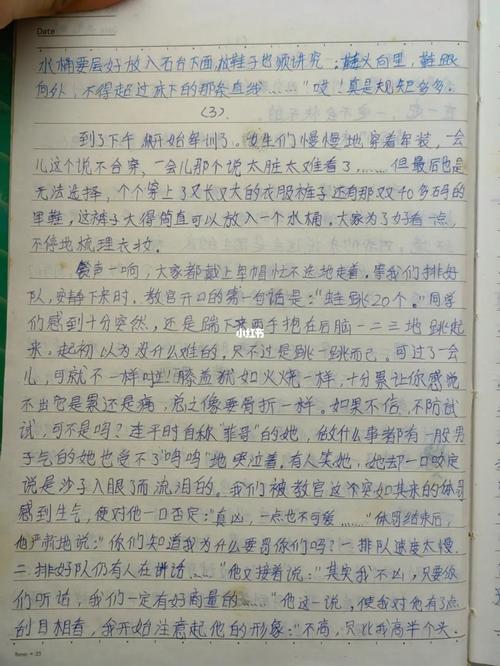 Date
水桶要层好放入石台下面,放鞋子也须讲究:鞋头向里,鞋跟
向外,不得超过床下的那条直线……"哎!真是规矩多多.
(3).
到了下午 就开始军训了。女生们慢慢地穿着军装,一会
儿这个说不合穿,一会儿那个说太脏太难看了……但最后也是
无法选择,个个穿上了又长又大的衣服裤子还有那双40多码的
军鞋,这裤子大得简直可以放入一个水桶。大家为了好看一点,
不停地梳理衣妆。
铃声一响,大家都戴上军帽忙不迭地走着。等我们排好
队,安静下来时,教官开口的第一句话是:"蛙跳20个。"同学
们感到十分突然,还是蹲下来两手抱在后脑一二三地跳起
来。起初以为没什么难的,只不过是跳一跳而已,可过了一会
儿,可就不一样啦!膝盖犹如火烧一样,十分累让你感觉
不出它是累还是痛,总之像要骨折一样。如果不信,不防试
试,可不是吗?连平时自称"菲哥"的她,做什么事都有一股男
子气的她也受不了"呜呜"地哭泣着,有人笑她,她却一口咬定
说是沙子入眼了而流泪的。我们被教官这个突如其来的体罚
感到生气,便对他一口否定:"真凶,一点也不可爱……"体罚结束后,
他严肃地说:"你们知道我为什么要罚你们吗?一.排队速度太慢.
二.排好队仍有人在讲话……"他又接着说:"其实我不凶,只要你
们听话,我们一定有好商量的……"他这一说,使我对他有了点
刮目相看,我开始注意起他的形象:"不高,只比我高半个头.
小红书